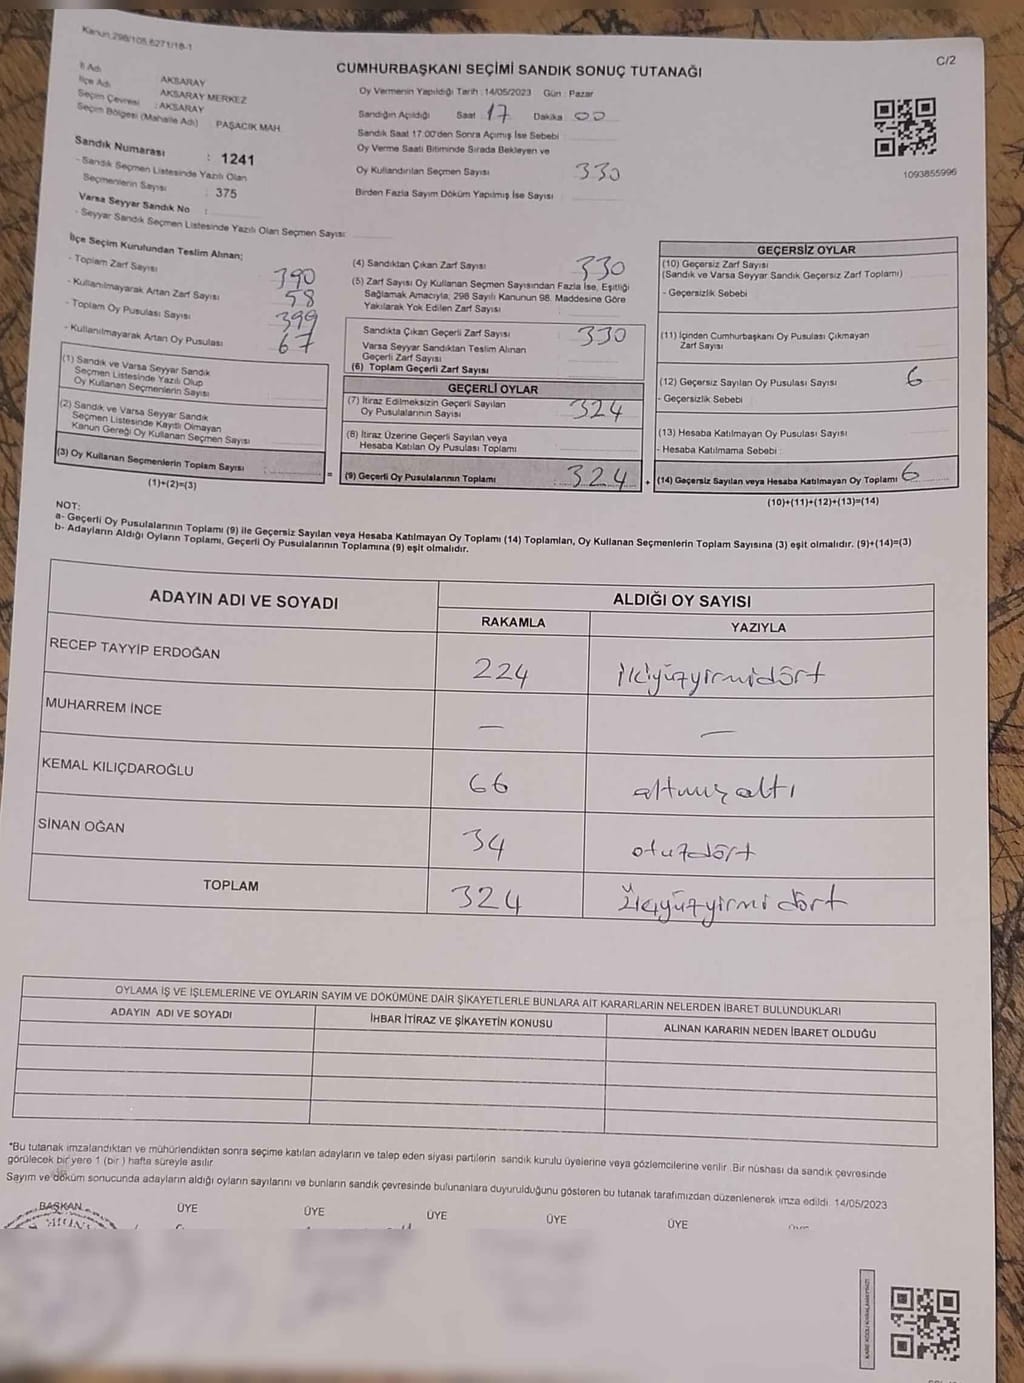 Kanun 298/105,6271/18-1
C/2
CUMHURBAŞKANI SEÇİMİ SANDIK SONUÇ TUTANAĞI
İl Adı
AKSARAY
İlçe Adı
AKSARAY MERKEZ
Seçim Çevresi : AKSARAY
Seçim Bölgesi (Mahalle Adı) : PAŞACIK MAH.
Sandık Numarası : 1241
- Sandık Seçmen Listesinde Yazılı Olan
Seçmenlerin Sayısı : 375
Varsa Seyyar Sandık No :
- Seyyar Sandık Seçmen Listesinde Yazılı Olan Seçmen Sayısı:
Oy Vermenin Yapıldığı Tarih :14/05/2023 Gün : Pazar
Sandığın Açıldığı Saat : 17 Dakika : 00
Sandık Saat 17:00'den Sonra Açılmış İse Sebebi
Oy Verme Saati Bitiminde Sırada Bekleyen ve
Oy Kullandırılan Seçmen Sayısı 330
Birden Fazla Sayım Döküm Yapılmış İse Sayısı
1093855996
İlçe Seçim Kurulundan Teslim Alınan;
- Toplam Zarf Sayısı 390
- Kullanılmayarak Artan Zarf Sayısı 58
- Toplam Oy Pusulası Sayısı 399
- Kullanılmayarak Artan Oy Pusulası 67
(1) Sandık ve Varsa Seyyar Sandık
Seçmen Listesinde Yazılı Olup
Oy Kullanan Seçmenlerin Sayısı
(2) Sandık ve Varsa Seyyar Sandık
Seçmen Listesinde Kayıtlı Olmayan
Kanun Gereği Oy Kullanan Seçmen Sayısı
(3) Oy Kullanan Seçmenlerin Toplam Sayısı :
(1)+(2)=(3)
(4) Sandıktan Çıkan Zarf Sayısı 330
(5) Zarf Sayısı Oy Kullanan Seçmen Sayısından Fazla İse, Eşitliği
Sağlamak Amacıyla, 298 Sayılı Kanunun 98. Maddesine Göre
Yakılarak Yok Edilen Zarf Sayısı
Sandıkta Çıkan Geçerli Zarf Sayısı 330
Varsa Seyyar Sandıktan Teslim Alınan
Geçerli Zarf Sayısı
(6) Toplam Geçerli Zarf Sayısı
GEÇERLİ OYLAR
(7) İtiraz Edilmeksizin Geçerli Sayılan
Oy Pusulalarının Sayısı 324
(8) İtiraz Üzerine Geçerli Sayılan veya
Hesaba Katılan Oy Pusulası Toplamı
= (9) Geçerli Oy Pusulalarının Toplamı 324 +
GEÇERSİZ OYLAR
(10) Geçersiz Zarf Sayısı
(Sandık ve Varsa Seyyar Sandık Geçersiz Zarf Toplamı)
- Geçersizlik Sebebi
(11) İçinden Cumhurbaşkanı Oy Pusulası Çıkmayan
Zarf Sayısı
(12) Geçersiz Sayılan Oy Pusulası Sayısı 6
- Geçersizlik Sebebi
(13) Hesaba Katılmayan Oy Pusulası Sayısı
- Hesaba Katılmama Sebebi :
(14) Geçersiz Sayılan veya Hesaba Katılmayan Oy Toplamı 6
(10)+(11)+(12)+(13)=(14)
NOT:
a- Geçerli Oy Pusulalarının Toplamı (9) ile Geçersiz Sayılan veya Hesaba Katılmayan Oy Toplamı (14) Toplamları, Oy Kullanan Seçmenlerin Toplam Sayısına (3) eşit olmalıdır. (9)+(14)=(3)
b- Adayların Aldığı Oyların Toplamı, Geçerli Oy Pusulalarının Toplamına (9) eşit olmalıdır.
ADAYIN ADI VE SOYADI ALDIĞI OY SAYISI
RAKAMLA YAZIYLA
RECEP TAYYİP ERDOĞAN 224 ikiyüzyirmidört
MUHARREM İNCE — —
KEMAL KILIÇDAROĞLU 66 altmışaltı
SİNAN OĞAN 34 otuzdört
TOPLAM 324
OYLAMA İŞ VE İŞLEMLERİNE VE OYLARIN SAYIM VE DÖKÜMÜNE DAİR ŞİKAYETLERLE BUNLARA AİT KARARLARIN NELERDEN İBARET BULUNDUKLARI
ADAYIN ADI VE SOYADI İHBAR İTİRAZ VE ŞİKAYETİN KONUSU ALINAN KARARIN NEDEN İBARET OLDUĞU
*Bu tutanak imzalandıktan ve mühürlendikten sonra seçime katılan adayların ve talep eden siyasi partilerin sandık kurulu üyelerine veya gözlemcilerine verilir. Bir nüshası da sandık çevresinde
görülecek bir yere 1 (bir ) hafta süreyle asılır.
Sayım ve döküm sonucunda adayların aldığı oyların sayılarını ve bunların sandık çevresinde bulunanlara duyurulduğunu gösteren bu tutanak tarafımızdan düzenlenerek imza edildi. 14/05/2023
BAŞKAN ÜYE ÜYE ÜYE ÜYE ÜYE